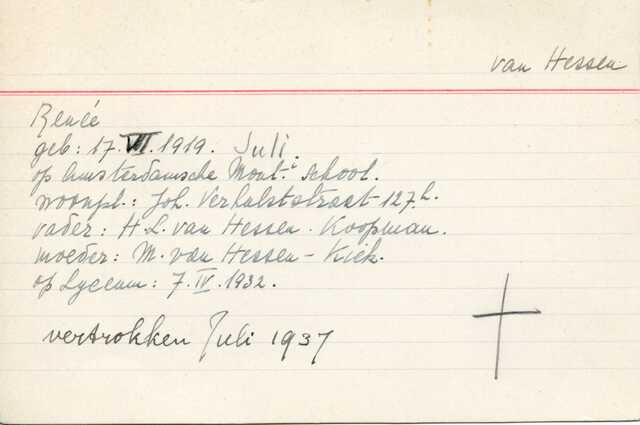 van Hessen
Renée
geb: 17. VII. 1919. Juli.
op Amsterdamsche Mont.i School.
woonpl.: Joh. Verhulststraat 127h.
vader: H. L. van Hessen. Koopman.
moeder: M. van Hessen - Kiek.
op Lyceum: 7. IV. 1932.
vertrokken Juli 1937